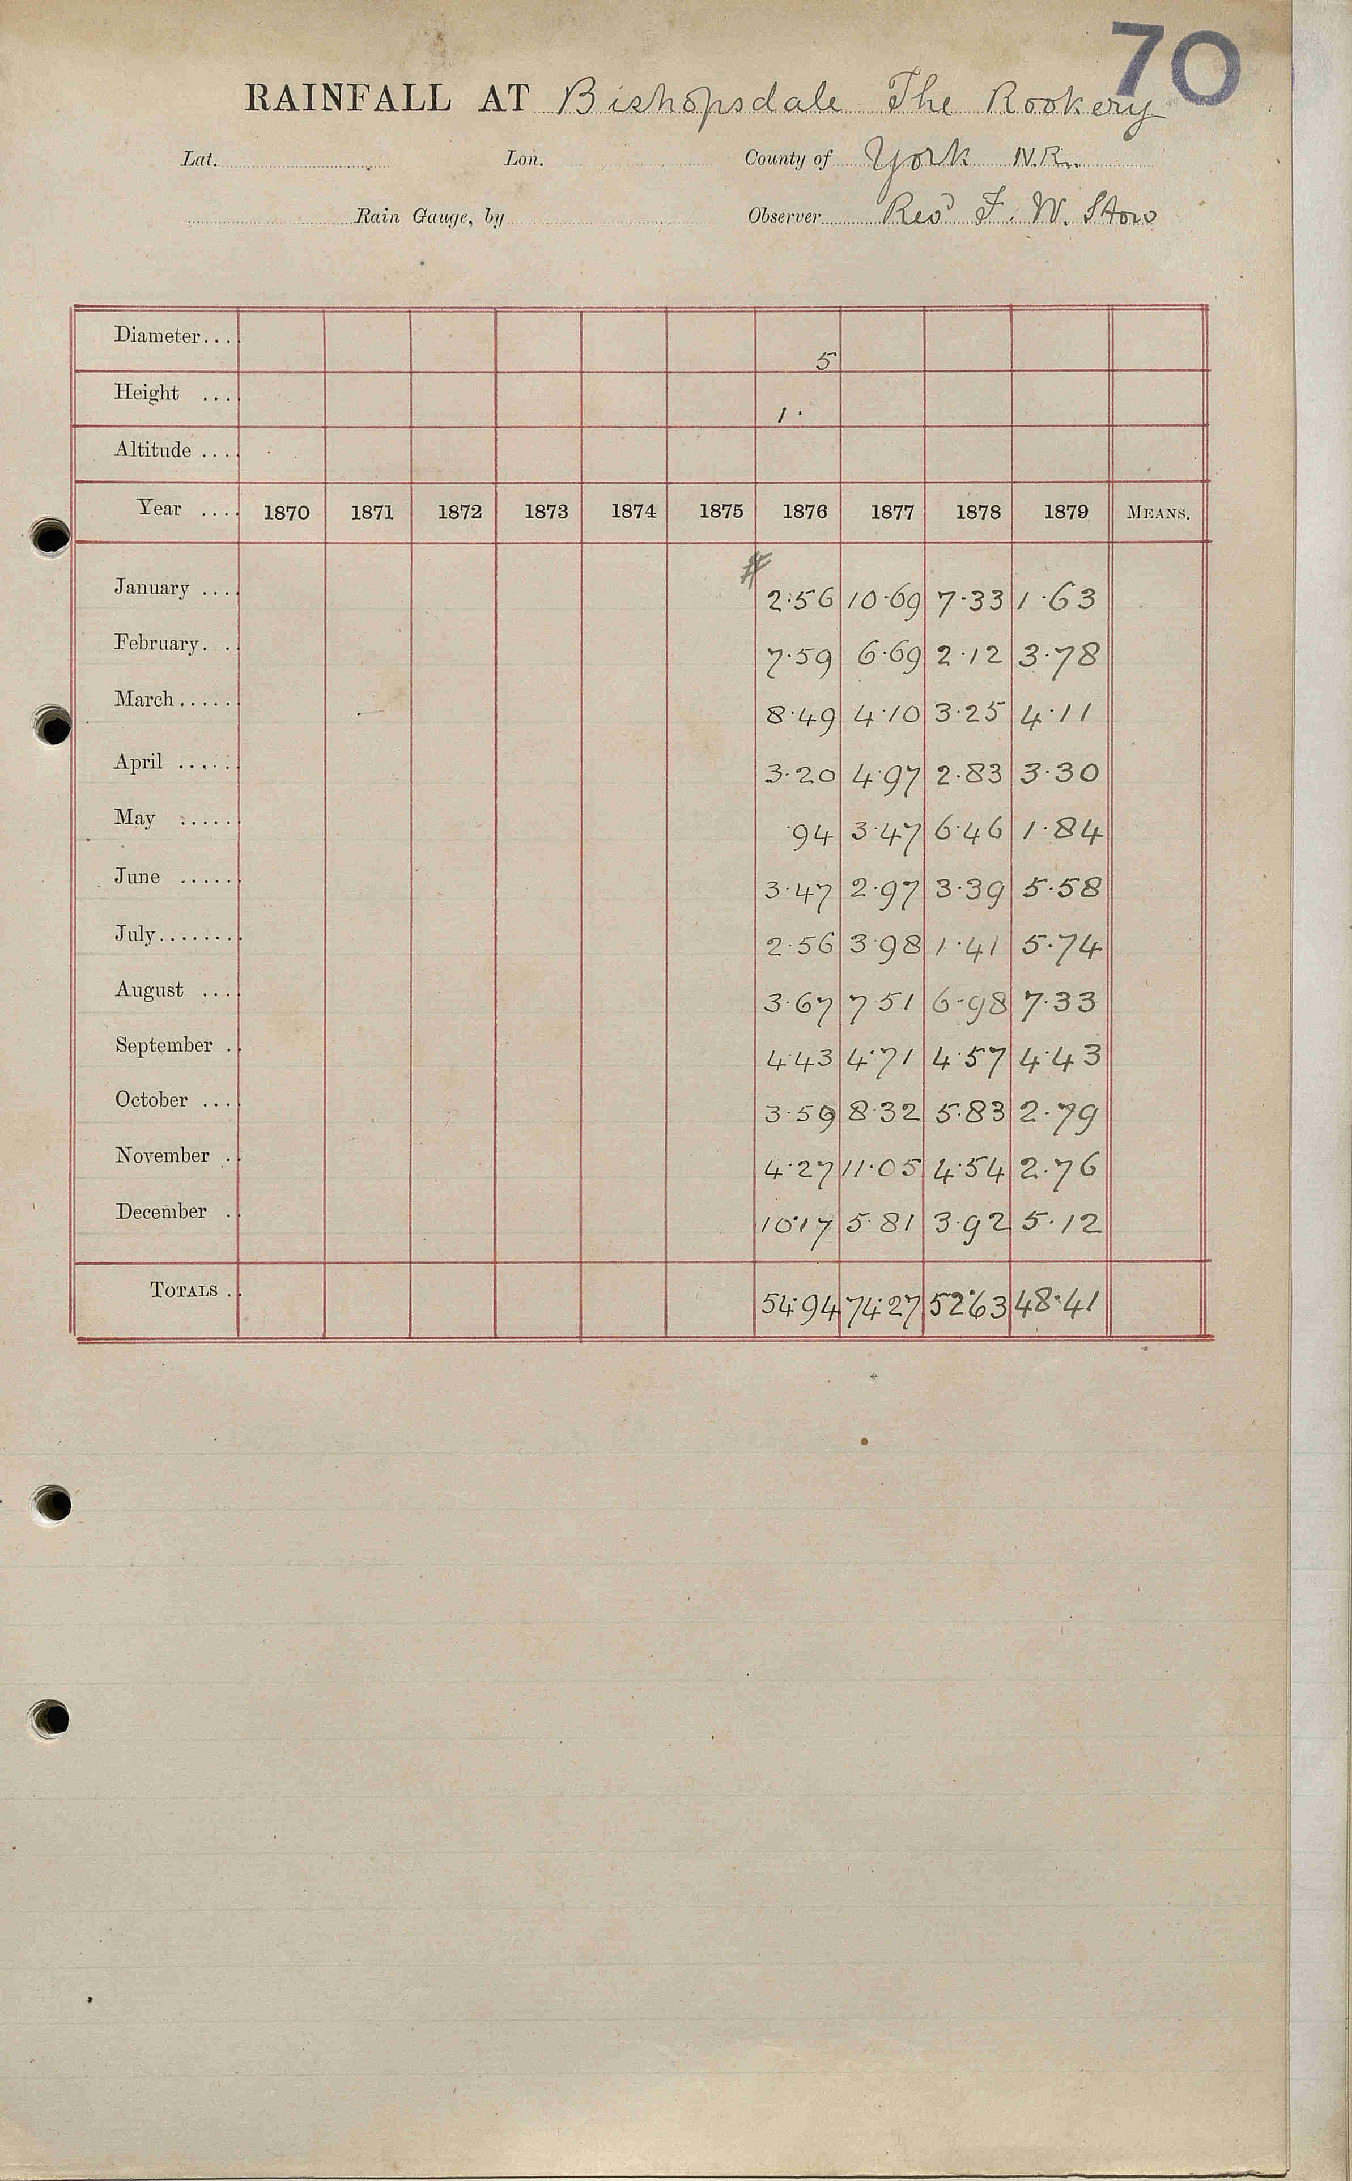 70
RAINFALL AT Bishopsdale The Rookery
Lat. Lon. County of York N.R.
Rain Gauge, by Observer Revd F. W. Stow
Diameter... 5
Height ... 1·
Altitude ....
Year .... 1870 1871 1872 1873 1874 1875 1876 1877 1878 1879 MEANS.
#
January .... 2·56 10·69 7·33 1·63
February. . 7·59 6·69 2·12 3·78
March ..... 8·49 4·10 3·25 4·11
April ..... 3·20 4·97 2·83 3·30
May ..... ·94 3·47 6·46 1·84
June ..... 3·47 2·97 3·39 5·58
July........ 2·56 3·98 1·41 5·74
August .... 3·67 7·51 6·98 7·33
September . 4·43 4·71 4·57 4·43
October .... 3·59 8·32 5·83 2·79
November . 4·27 11·05 4·54 2·76
December . 10·17 5·81 3·92 5·12
TOTALS . 54·94 74·27 52·63 48·41